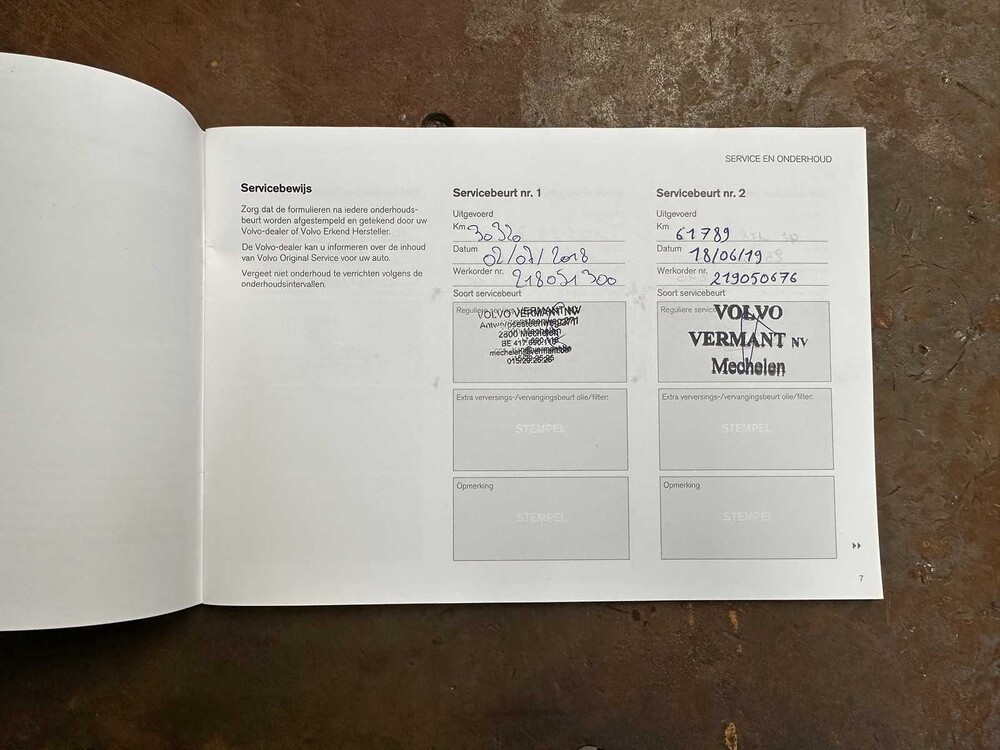 SERVICE EN ONDERHOUD
Servicebewijs
Zorg dat de formulieren na iedere onderhouds-
beurt worden afgestempeld en getekend door uw
Volvo-dealer of Volvo Erkend Hersteller.
De Volvo-dealer kan u informeren over de inhoud
van Volvo Original Service voor uw auto.
Vergeet niet onderhoud te verrichten volgens de
onderhoudsintervallen.
Servicebeurt nr. 1
Uitgevoerd
Km 30320
Datum 02/07/2018
Werkorder nr. 218051300
Soort servicebeurt
Reguliere
VOLVO VERMANT NV
2800 Mechelen
015/29.25.25
Extra verversings-/vervangingsbeurt olie/filter:
STEMPEL
Opmerking
STEMPEL
Servicebeurt nr. 2
Uitgevoerd
Km 61789
Datum 18/06/19
Werkorder nr. 219050676
Soort servicebeurt
Reguliere service
VOLVO
VERMANT NV
Mechelen
Extra verversings-/vervangingsbeurt olie/filter:
STEMPEL
Opmerking
STEMPEL
7